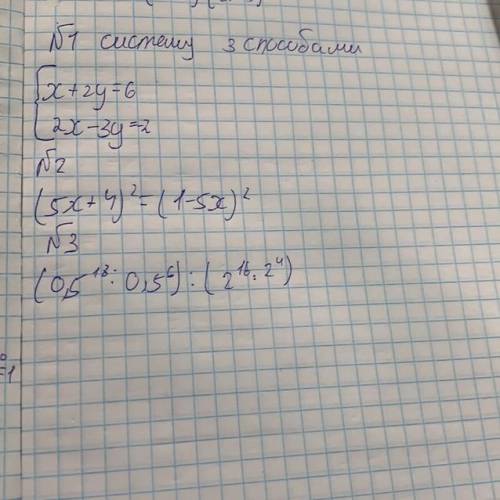 №1 систему 3 способами
{x+2y=6
{2x-3y=2
№2
(5x+4)²=(1-5x)²
№3
(0,5¹⁸:0,5⁶):(2¹⁶:2⁴)